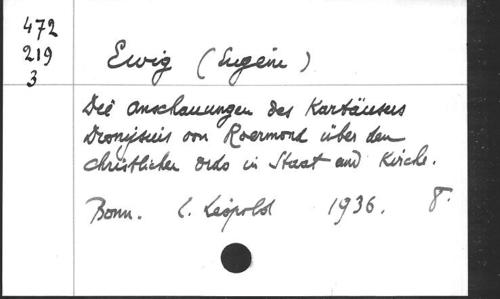 472
219
3
Ewig (Eugène)
Die Anschauungen des Kartäusers
Dionysius von Roermond über den
christlichen Ordo in Staat und Kirche.
Bonn. L. Leopold 1936. 8.